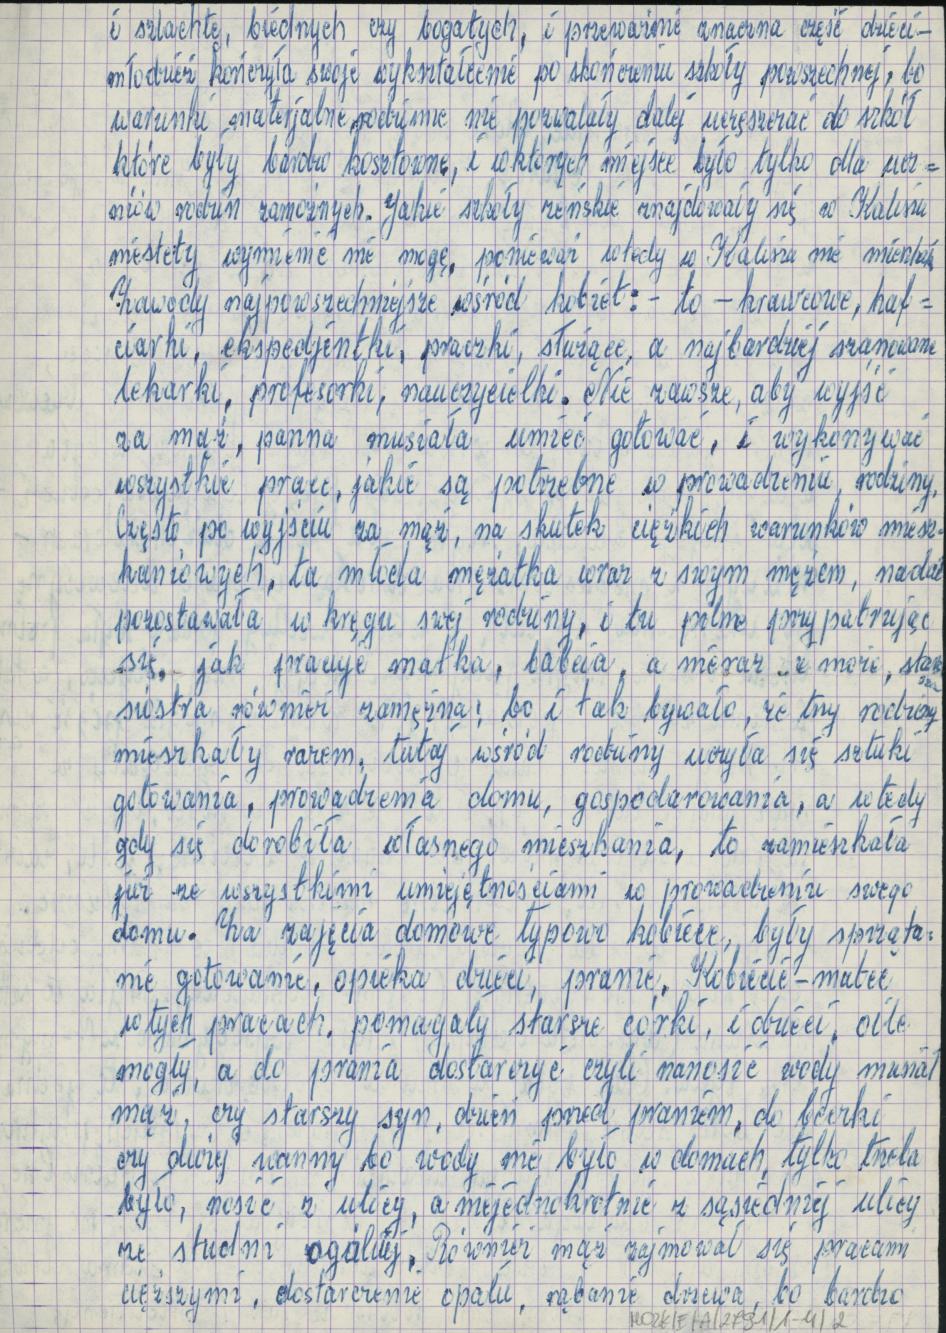 i szlachtę, biednych czy bogatych, i przeważnie znaczna część dzieci-
młodzież kończyła swoje wykształcenie po skończeniu szkoły powszechnej, bo
warunki materjalne rodzinne nie pozwalały dalej uczęszczać do szkół
które były bardzo kosztowne, i w których miejsce było tylko dla ucz=
niów rodzin zamożnych. Jakie szkoły żeńskie znajdowały się w Kaliszu
niestety wymienić nie mogę, ponieważ wtedy w Kaliszu nie
Zawody najpowszechniejsze wśród kobiet: - to - krawcowe, haf=
ciarki, ekspedjentki, praczki, służące, a najbardziej szanowane
lekarki, profesorki, nauczycielki. Nie zawsze, aby wyjść
za mąż, panna musiała umieć gotować, i wykonywać
wszystkie prace, jakie są potrzebne w prowadzeniu rodziny,
Często po wyjściu za mąż, na skutek ciężkich warunków miesz-
kaniowych, ta młoda mężatka wraz z swym mężem, nadal
pozostawała w kręgu swej rodziny, i tu pilne przypatrując
się, jak pracuje matka, babcia, a nieraz z może, starsza
siostra również zamężna! bo i tak bywało, że trzy rodziny
mieszkały razem, tutaj wśród rodziny uczyła się sztuki
gotowania, prowadzenia domu, gospodarowania, a wtedy
gdy się dorobiła własnego mieszkania, to zamieszkała
już ze wszystkimi umiejętnościami w prowadzeniu swego
domu. Za zajęcia domowe typowo kobiece, były sprząta=
nie gotowanie, opieka dzieci, pranie, Kobiecie-matce
w tych pracach, pomagały starsze córki, i dzieci, o ile
mogły, a do prania dostarczyć czyli nanosić wody musiał
mąż, czy starszy syn, dzień przed praniem, do beczki
czy dużej wanny bo wody nie było w domach, tylko trzeba
było, nosić z ulicy, a niejednokrotnie z sąsiedniej ulicy
ze studni ogólnej, Również mąż zajmował się pracami
cięższymi, dostarczenie opału, rąbanie drzewa, bo bardzo